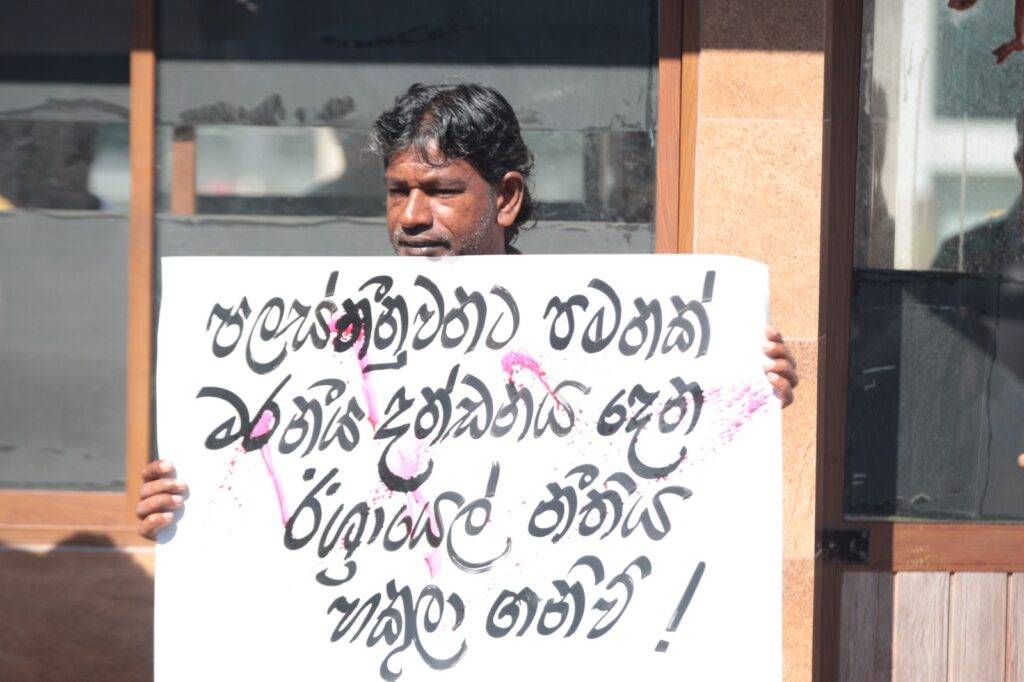 පලස්තීනුවනට පමනක්
මරනීය දන්ඩනය දෙන
ඊශ්‍රායෙල් නීතිය
හකුලා ගනිව් !